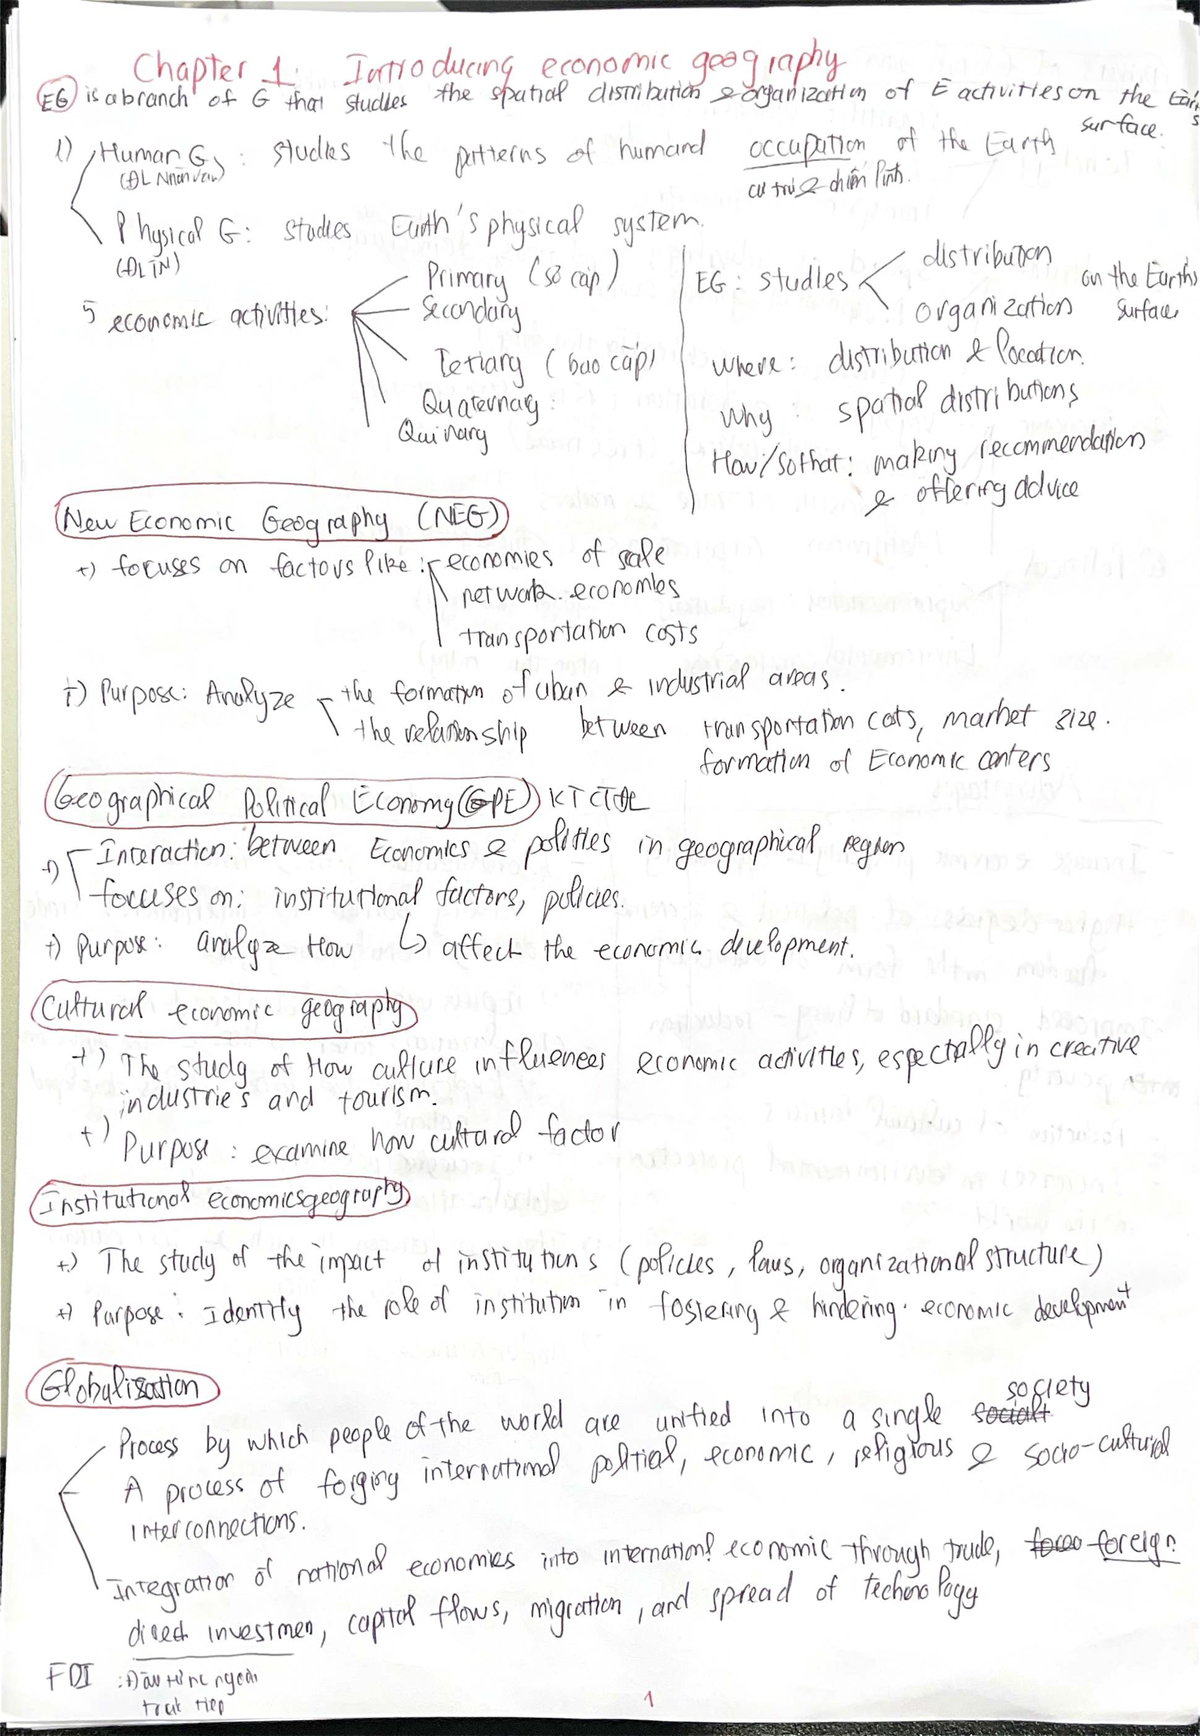 Chapter 1: Introducing economic geography
EG is a branch of G that studies the spatial distribution & organization of E activities on the Earth's
surface.
1) Human G : studies the patterns of humand occupation of the Earth
(ĐL Nhân văn)
cư trú & chiếm lĩnh.
Physical G: studies Earth's physical system.
(ĐLTN)
5 economic activities:
Primary (sơ cấp)
Secondary
Tetiary (bao cấp)
Quaternary:
Quinary
EG: studies
distribution
organization
on the Earth's
surface
Where: distribution & location.
Why : spatial distributions
How/Sothat: making recommendation
& offering advice
New Economic Geography (NEG)
+) focuses on factors like:
economies of scale
network economies
transportation costs
+) Purpose: Analyze
the formation of uban & industrial areas.
the relationship between transportation costs, market size.
formation of Economic centers
Geographical Political Economy (GPE) KTCTĐL
+) Interaction: between Economics & polities in geographical region
focuses on: institutional factors, policies.
+) Purpose: analyze How ↳ affect the economic development.
Cultural economic geography
+) The study of How culture influences economic activities, especially in creative
industries and tourism.
+) Purpose : examine how cultural factor
Institutional economics geography
+) The study of the impact of institutions (policies, laws, organizational structure)
+) Purpose: Identify the role of institution in fostering & hindering economic development
Globalization
Process by which people of the world are unified into a single society
A process of forging international political, economic, religious & socio-cultural
interconnections.
Integration of national economies into international economic through trade, foreign
direct investmen, capital flows, migration, and spread of technology
FDI : Đầu tư nc ngoài
trực tiếp
1